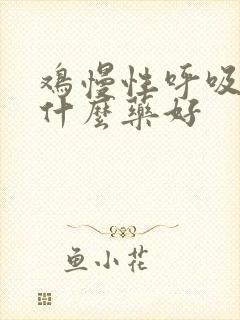 鸡慢性呼吸
什麼藥好
鱼小花